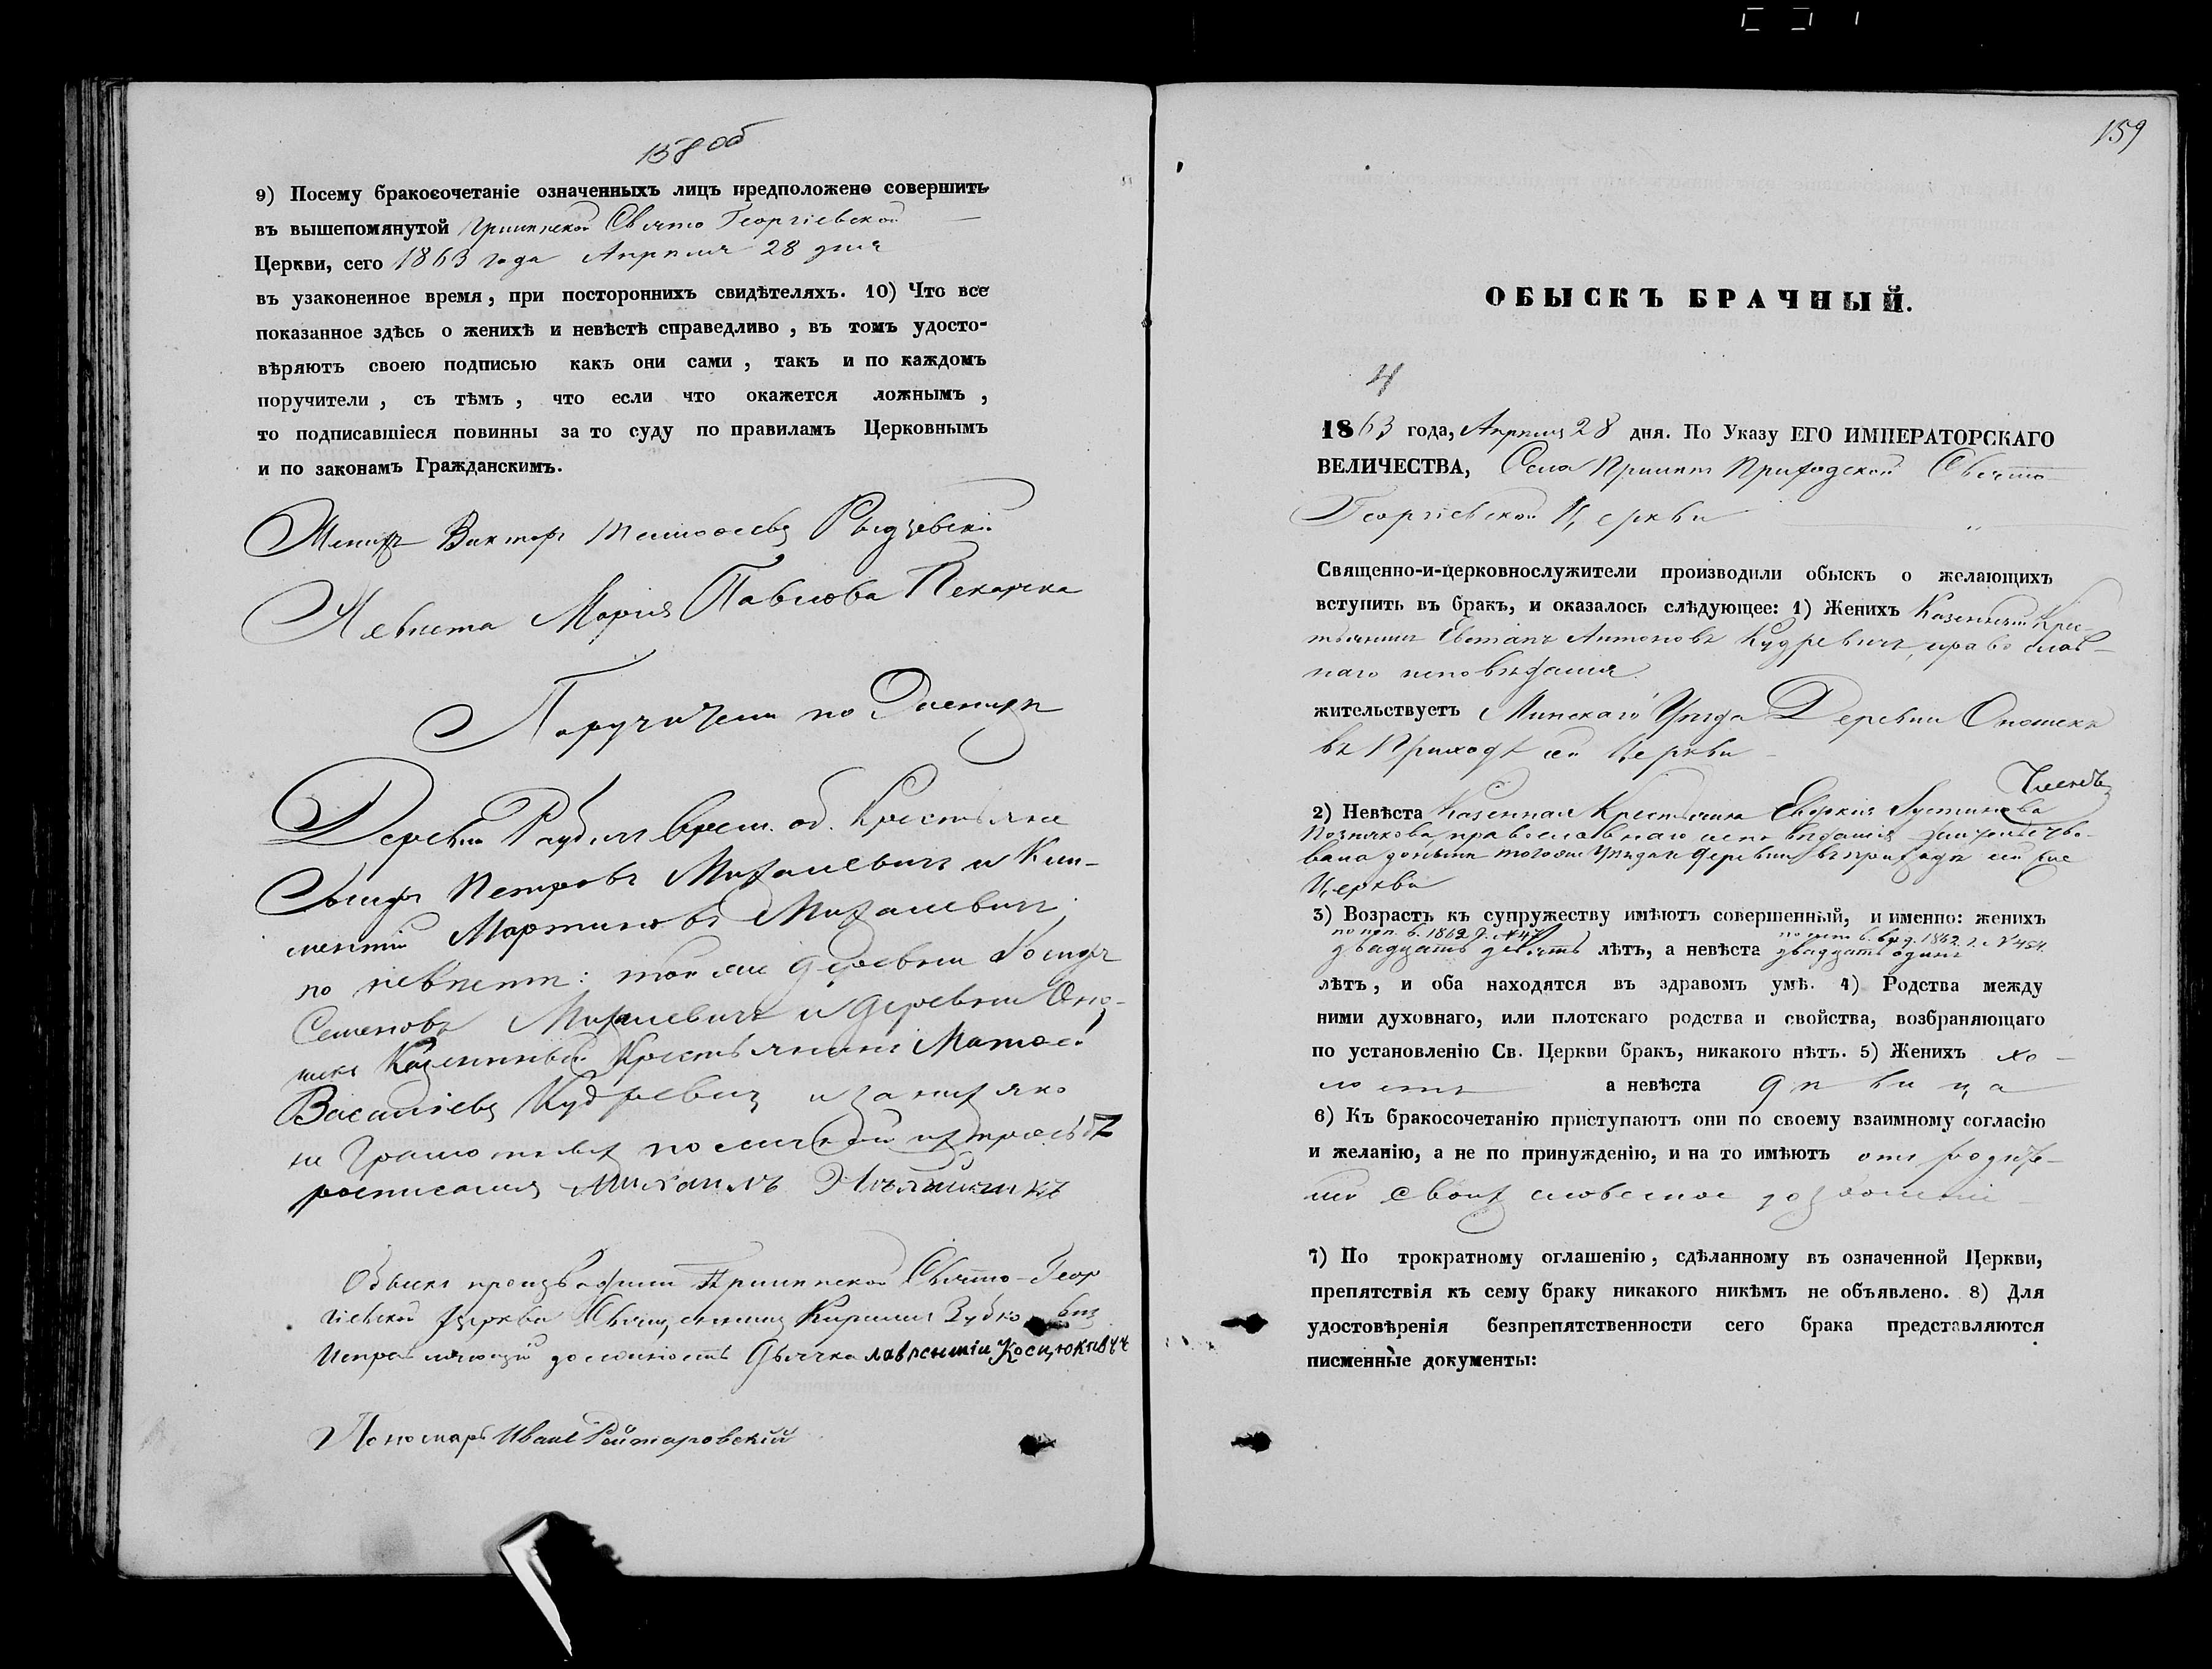 158 об
9) Посему бракосочетаніе означенныхъ лицъ предположено совершить
въ вышепомянутой Свято Георгіевской
Церкви, сего 1863 года Апрѣля 28 дня
въ узаконенное время, при постороннихъ свидѣтеляхъ. 10) Что все
показанное здѣсь о женихѣ и невѣстѣ справедливо, въ томъ удосто-
вѣряютъ своею подписью какъ они сами, такъ и по каждомъ
поручители, съ тѣмъ, что если что окажется ложнымъ,
то подписавшіеся повинны за то суду по правиламъ Церковнымъ
и по законамъ Гражданскимъ.
Женихъ Викторъ
Невѣста Марія Павлова
Поручители по
Деревни крестьяне
Петровъ Михалевичъ и Кли-
ментій Мартиновъ Михалевичъ;
по невѣстѣ: той же деревни
Семеновъ Михалевичъ и деревни Оно-
шекъ Казенный Крестьянинъ Матѳей
Василіевъ Кудревичъ и за нихъ яко
не грамотныхъ по личной ихъ просьбѣ
росписался Михаилъ
Обыскъ производили Свято-Геор
гіевской Церкви Священникъ Кирилл
Исправляющій должность Дьячка Лаврентій Косцюкевичъ
Пономарь Иванъ Рейтаровскій
159
ОБЫСКЪ БРАЧНЫЙ.
4
1863 года, Апрѣля 28 дня. По Указу ЕГО ИМПЕРАТОРСКАГО
ВЕЛИЧЕСТВА, Села Приходской Свято
Георгіевской Церкви
Священно-и-церковнослужители производили обыскъ о желающихъ
вступить въ бракъ, и оказалось слѣдующее: 1) Женихъ Казенный Крес-
тьянинъ Антоновъ Кудревичъ, православ-
наго исповѣданія
жительствуетъ Минскаго Уѣзда Деревни Оношекъ
въ Приходѣ сей Церкви
2) Невѣста Казенная Крестьянка Устинова
православнаго исповѣданія жительство-
вала донынѣ того же Уѣзда и деревни въ приходѣ сей же
Церкви
3) Возрастъ къ супружеству имѣютъ совершенный, и именно: женихъ
двадцать девять лѣтъ, а невѣста двадцать одинъ
лѣтъ, и оба находятся въ здравомъ умѣ. 4) Родства между
ними духовнаго, или плотскаго родства и свойства, возбраняющаго
по установленію Св. Церкви бракъ, никакого нѣтъ. 5) Женихъ хо-
лостъ а невѣста дѣвица
6) Къ бракосочетанію приступаютъ они по своему взаимному согласію
и желанію, а не по принужденію, и на то имѣютъ отъ родите-
лей своихъ словесное дозволеніе
7) По трократному оглашенію, сдѣланному въ означенной Церкви,
препятствія къ сему браку никакого никѣмъ не объявлено. 8) Для
удостовѣренія безпрепятственности сего брака представляются
писменные документы: